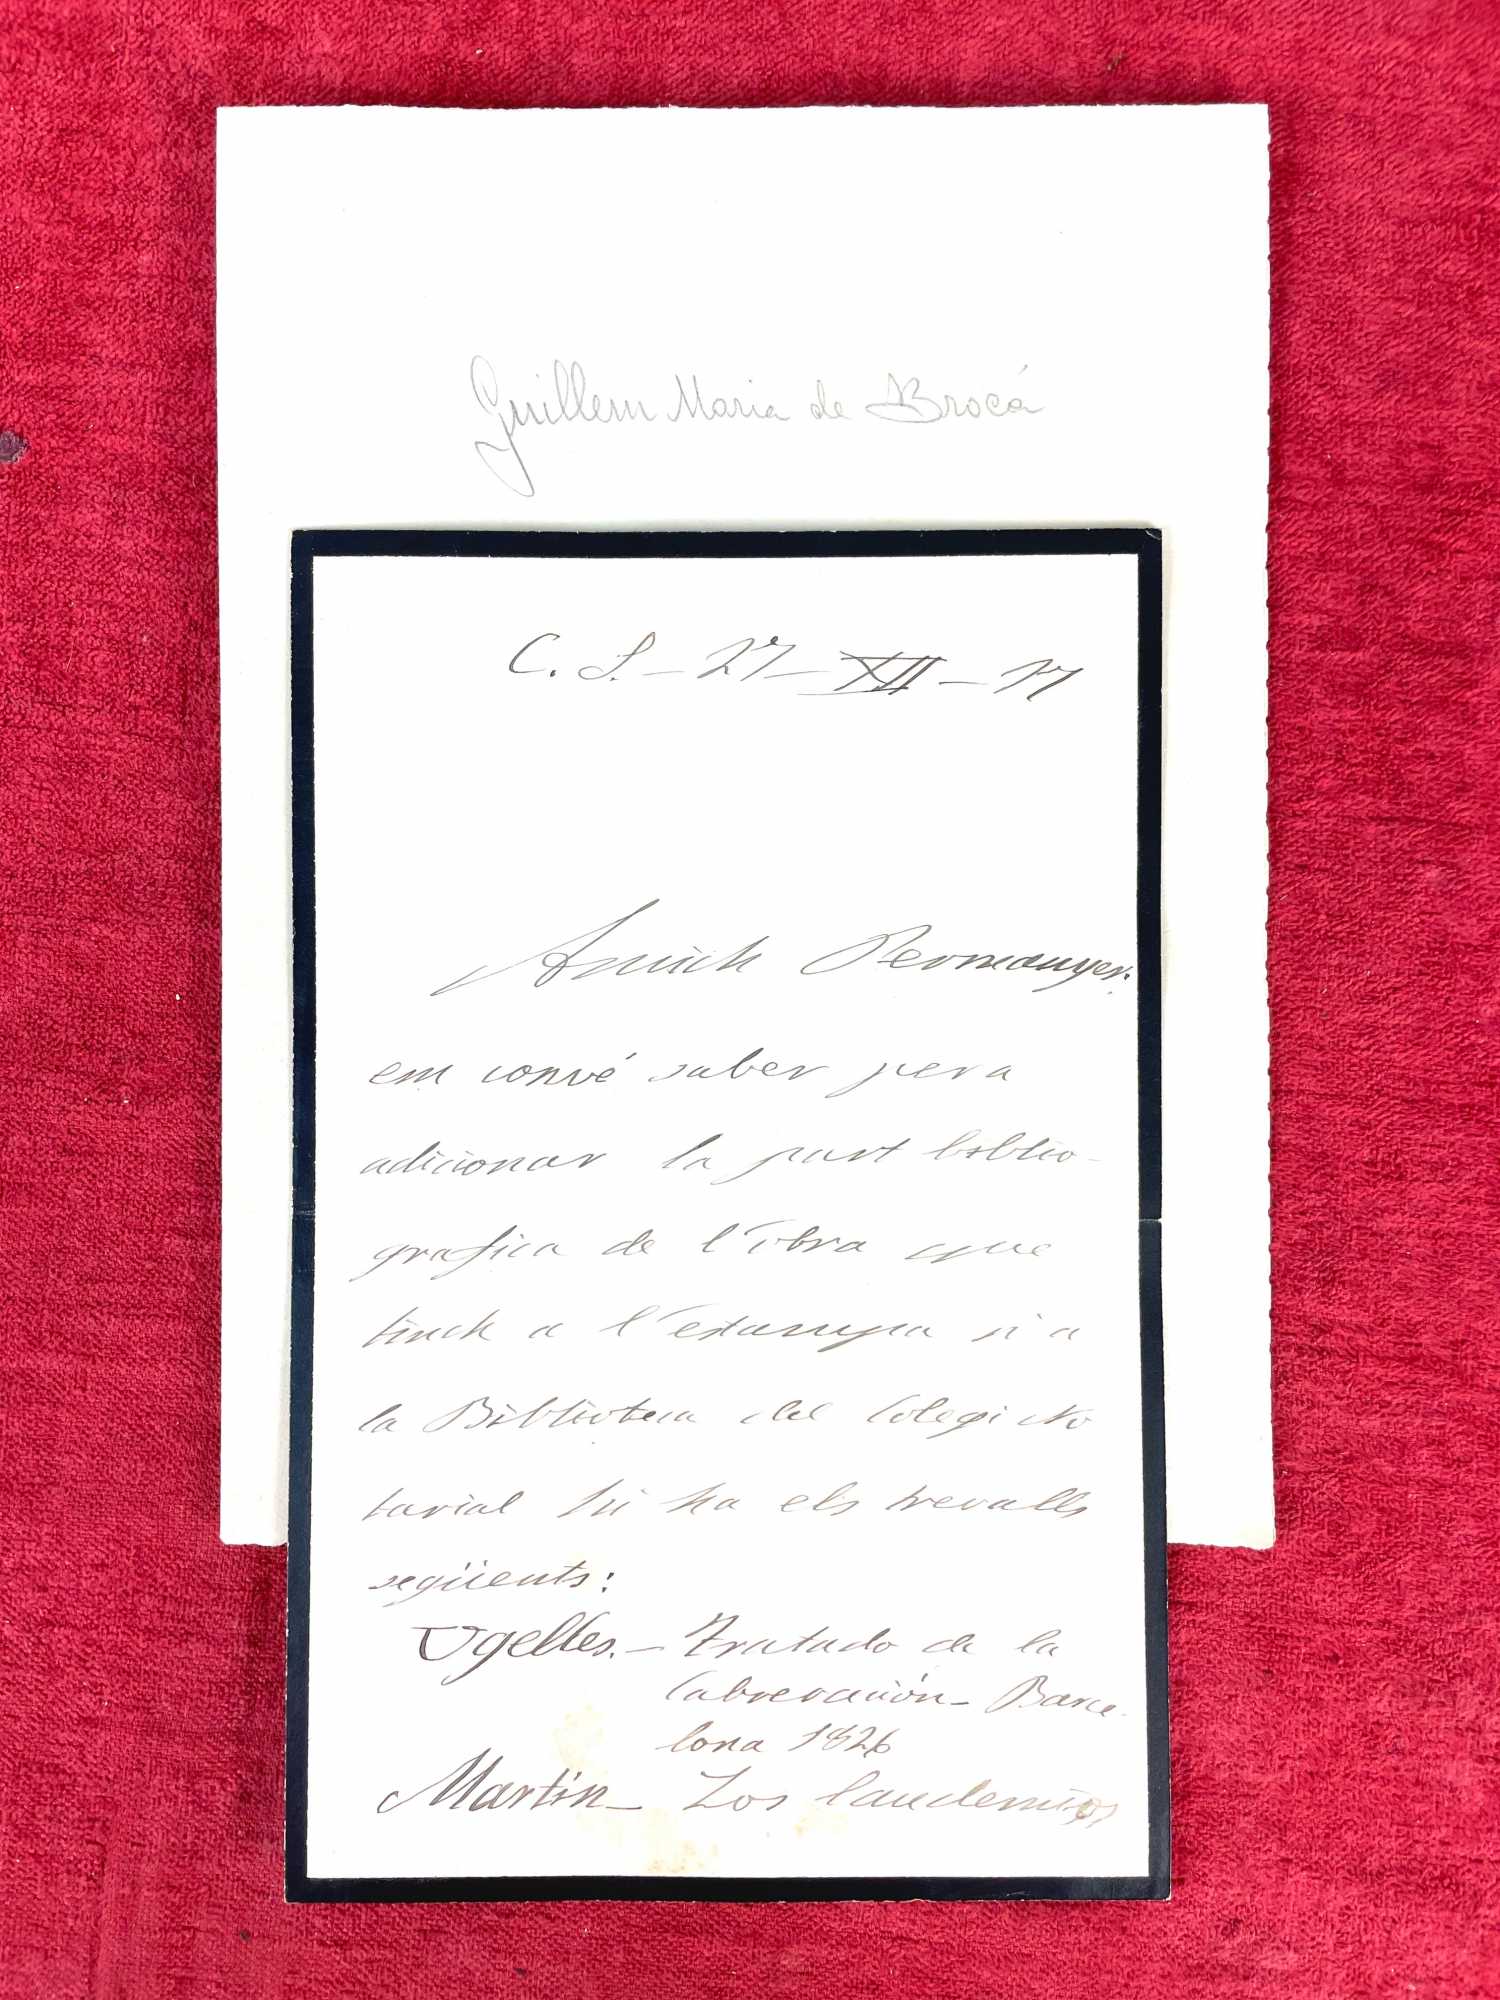 Guillem Maria de Brocá
C. S. - 27 - XII - 17
Amich Permanyer:
em convé saber pera
adicionar la part biblio-
grafica de l'obra que
tinch a l'estampa si a
la Biblioteca del Colegi No
tarial hi ha els trevalls
següents:
Ugelles. - Tratado de la
Cabrevación - Barce-
lona 1826
Martín - Los laudemios